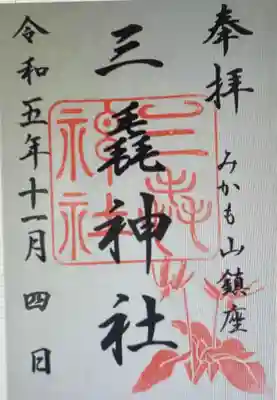 奉拝
みかも山鎮座
三毳神社
三毳神社
令和五年十一月四日